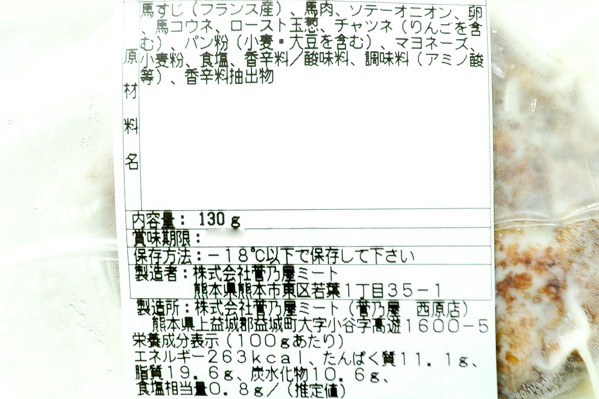 馬すじ（フランス産）、馬肉、ソテーオニオン、卵
、馬コウネ、ロースト玉葱、チャツネ（りんごを含
む）、パン粉（小麦・大豆を含む）、マヨネーズ、
小麦粉、食塩、香辛料／酸味料、調味料（アミノ酸
等）、香辛料抽出物
原材料名
内容量：130g
賞味期限：
保存方法：－18℃以下で保存して下さい
製造者：株式会社菅乃屋ミート
熊本県熊本市東区若葉1丁目35－1
製造所：株式会社菅乃屋ミート（菅乃屋 西原店）
熊本県上益城郡益城町大字小谷字高遊1600－5
栄養成分表示（100gあたり）
エネルギー263kcal、たんぱく質11.1g、
脂質19.6g、炭水化物10.6g、
食塩相当量0.8g／（推定値）